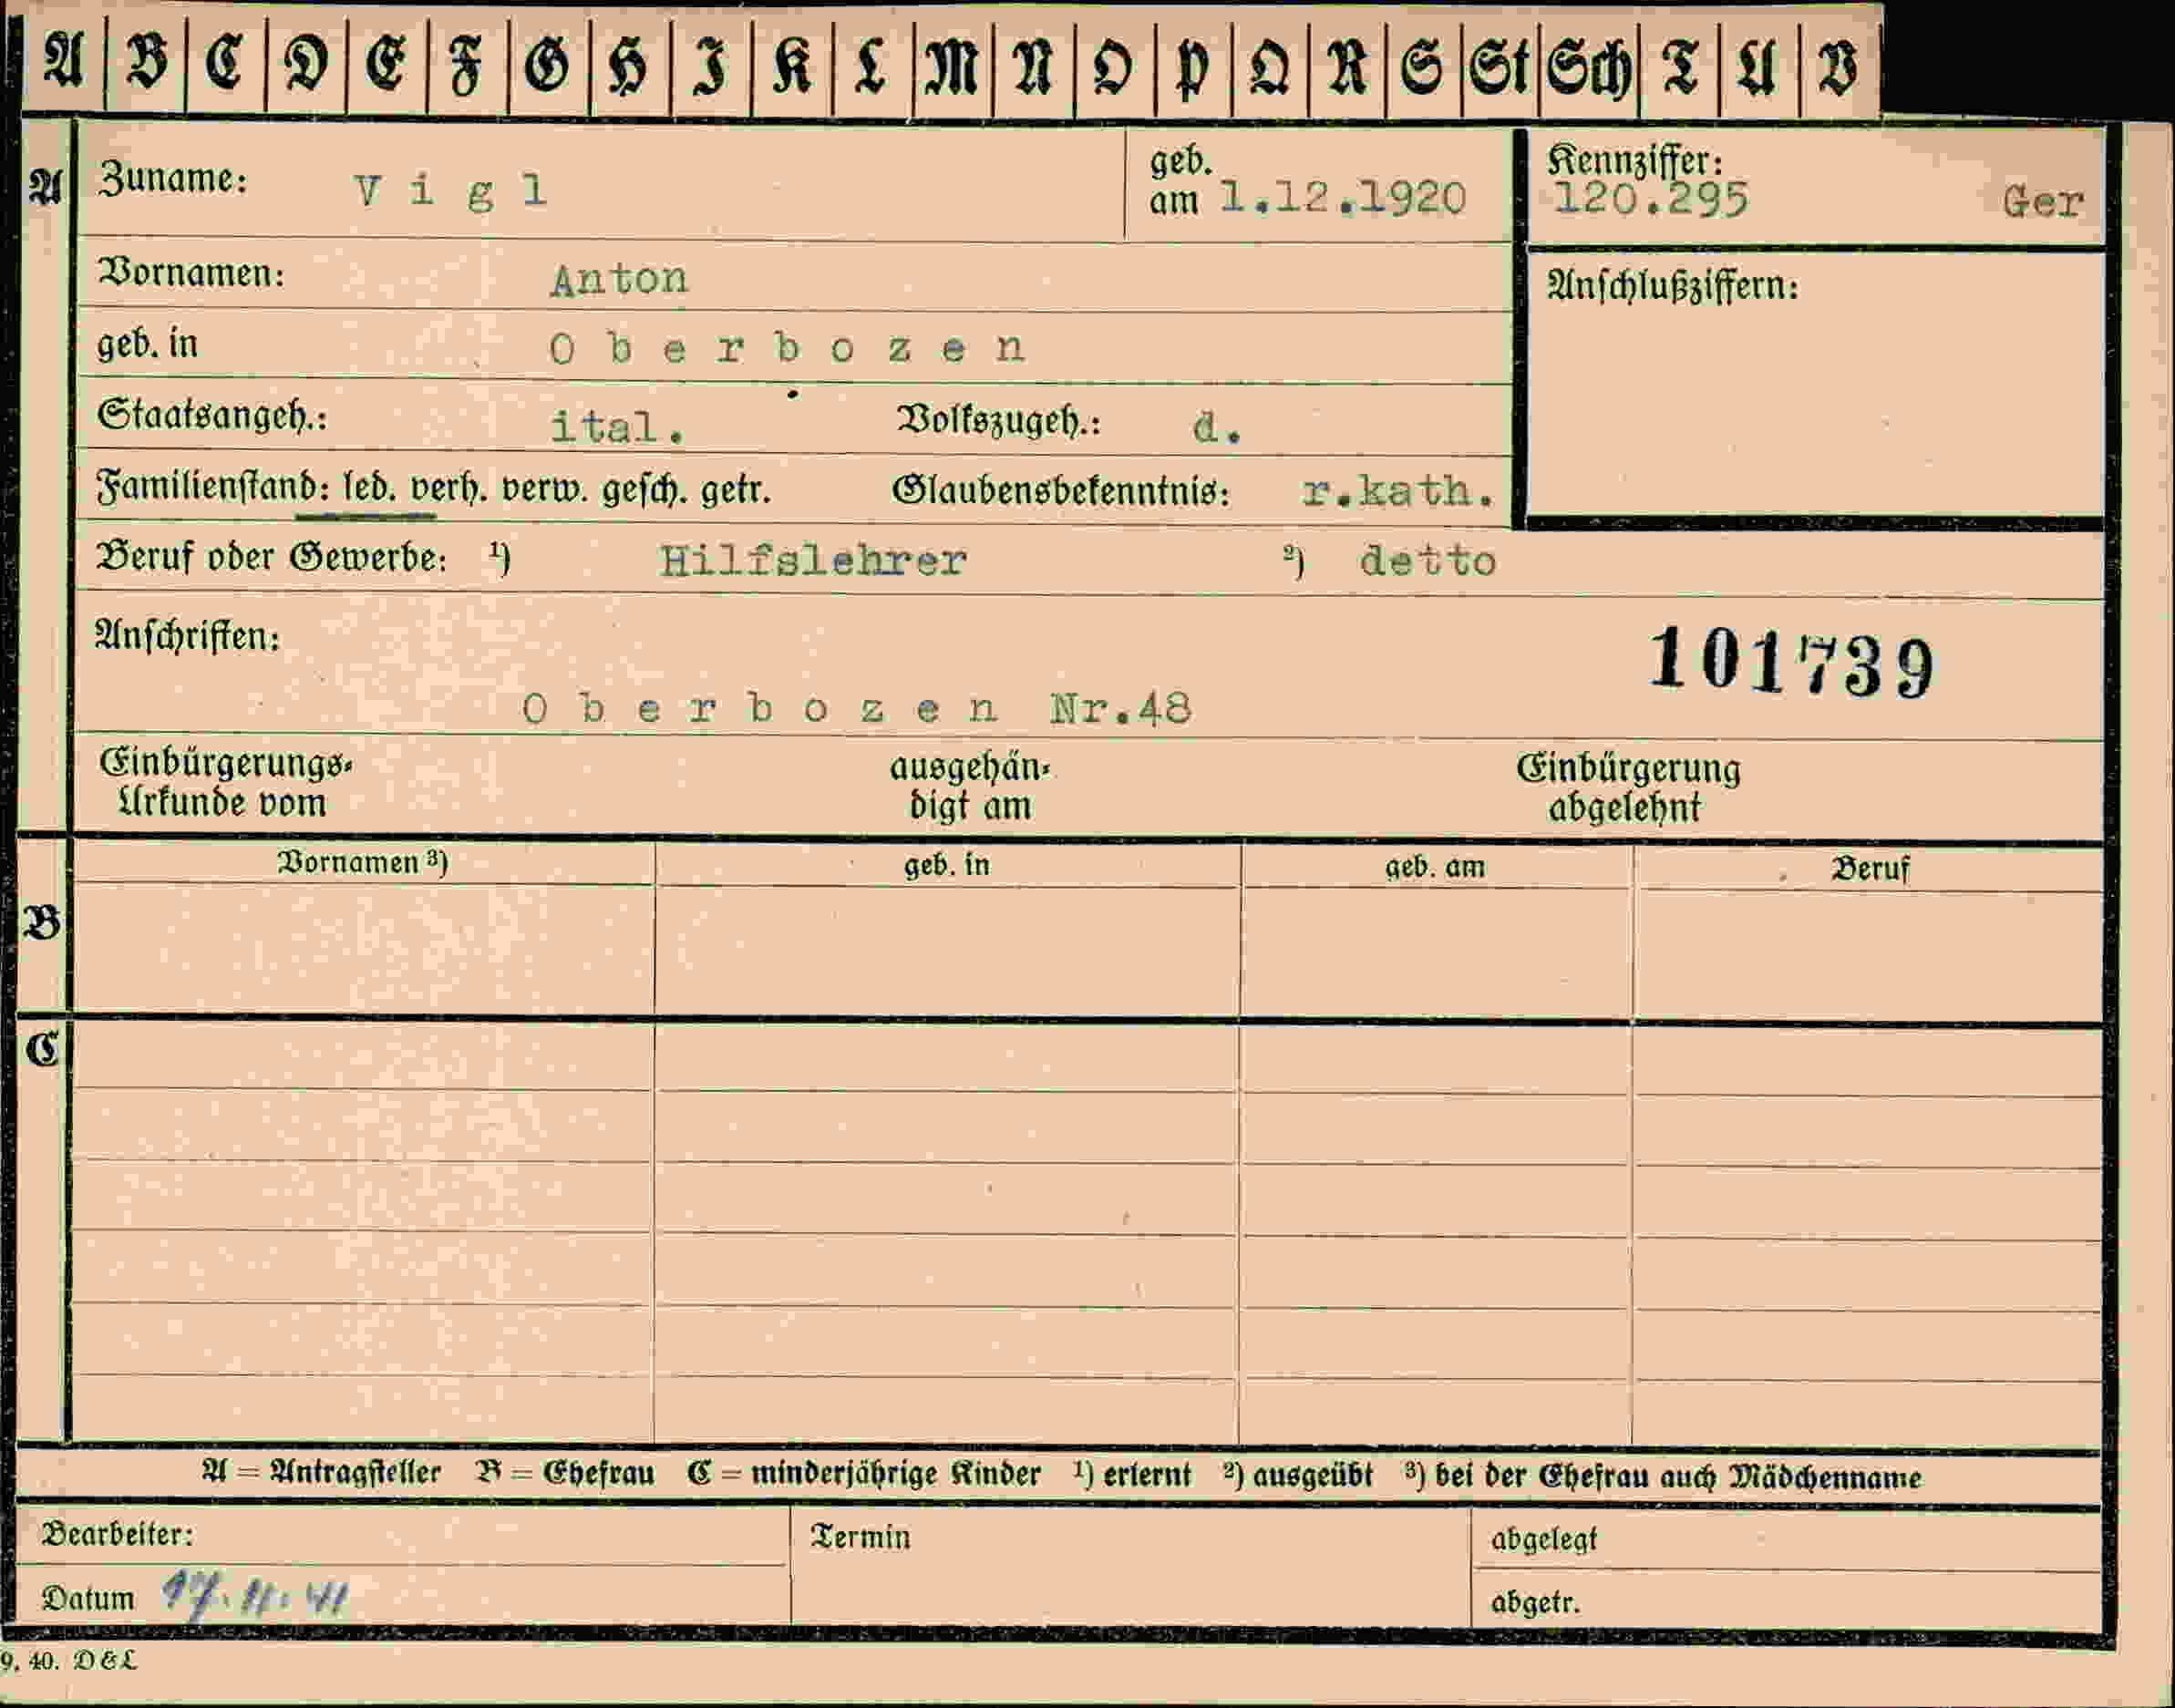 A B C D E F G H I K L M N O P Q R S St Sch T U V
A Zuname: Vigl geb. am 1.12.1920 Kennziffer: 120.295 Ger
Vornamen: Anton Anschlußziffern:
geb. in Oberbozen
Staatsangeh.: ital. Volkszugeh.: d.
Familienstand: led. verh. verw. gesch. getr. Glaubensbekenntnis: r.kath.
Beruf oder Gewerbe: 1) Hilfslehrer 2) detto
Anschriften: 101739
Oberbozen Nr.48
Einbürgerungs- ausgehän- Einbürgerung
Urkunde vom digt am abgelehnt
Vornamen 3) geb. in geb. am Beruf
B
C
A = Antragsteller B = Ehefrau C = minderjährige Kinder 1) erlernt 2) ausgeübt 3) bei der Ehefrau auch Mädchenname
Bearbeiter: Termin abgelegt
Datum 17.11.41 abgetr.
9. 40. D & L